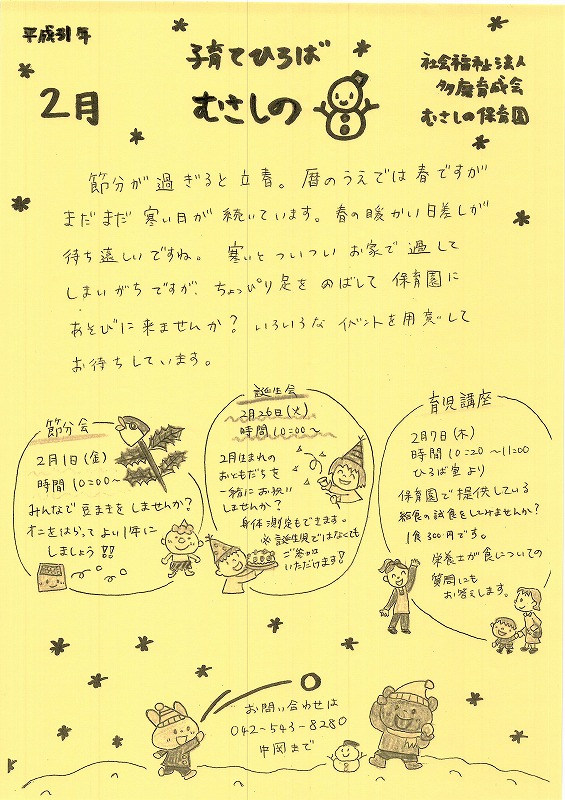 平成31年
2月
子育てひろば
むさしの
社会福祉法人
多摩育成会
むさしの保育園
節分が過ぎると立春。暦のうえでは春ですが
まだまだ寒い日が続いています。春の暖かい日差しが
待ち遠しいですね。寒いとついついお家で過して
しまいがちですが、ちょっぴり足をのばして保育園に
あそびに来ませんか？いろいろなイベントを用意して
お待ちしています。
節分会
2月1日(金)
時間10:00〜
みんなで豆まきをしませんか？
オニをはらってよい1年に
しましょう!!
誕生会
2月26日(火)
時間10:00〜
2月生まれの
おともだちを
一緒にお祝い
しませんか？
身体測定もできます。
※誕生児ではなくても
ご参加
いただけます!
育児講座
2月7日(木)
時間10:20〜11:00
ひろば室より
保育園で提供している
給食の試食をしてみませんか？
1食300円です。
栄養士が食についての
質問にも
お答えします。
お問い合わせは
042-543-8280
中岡まで